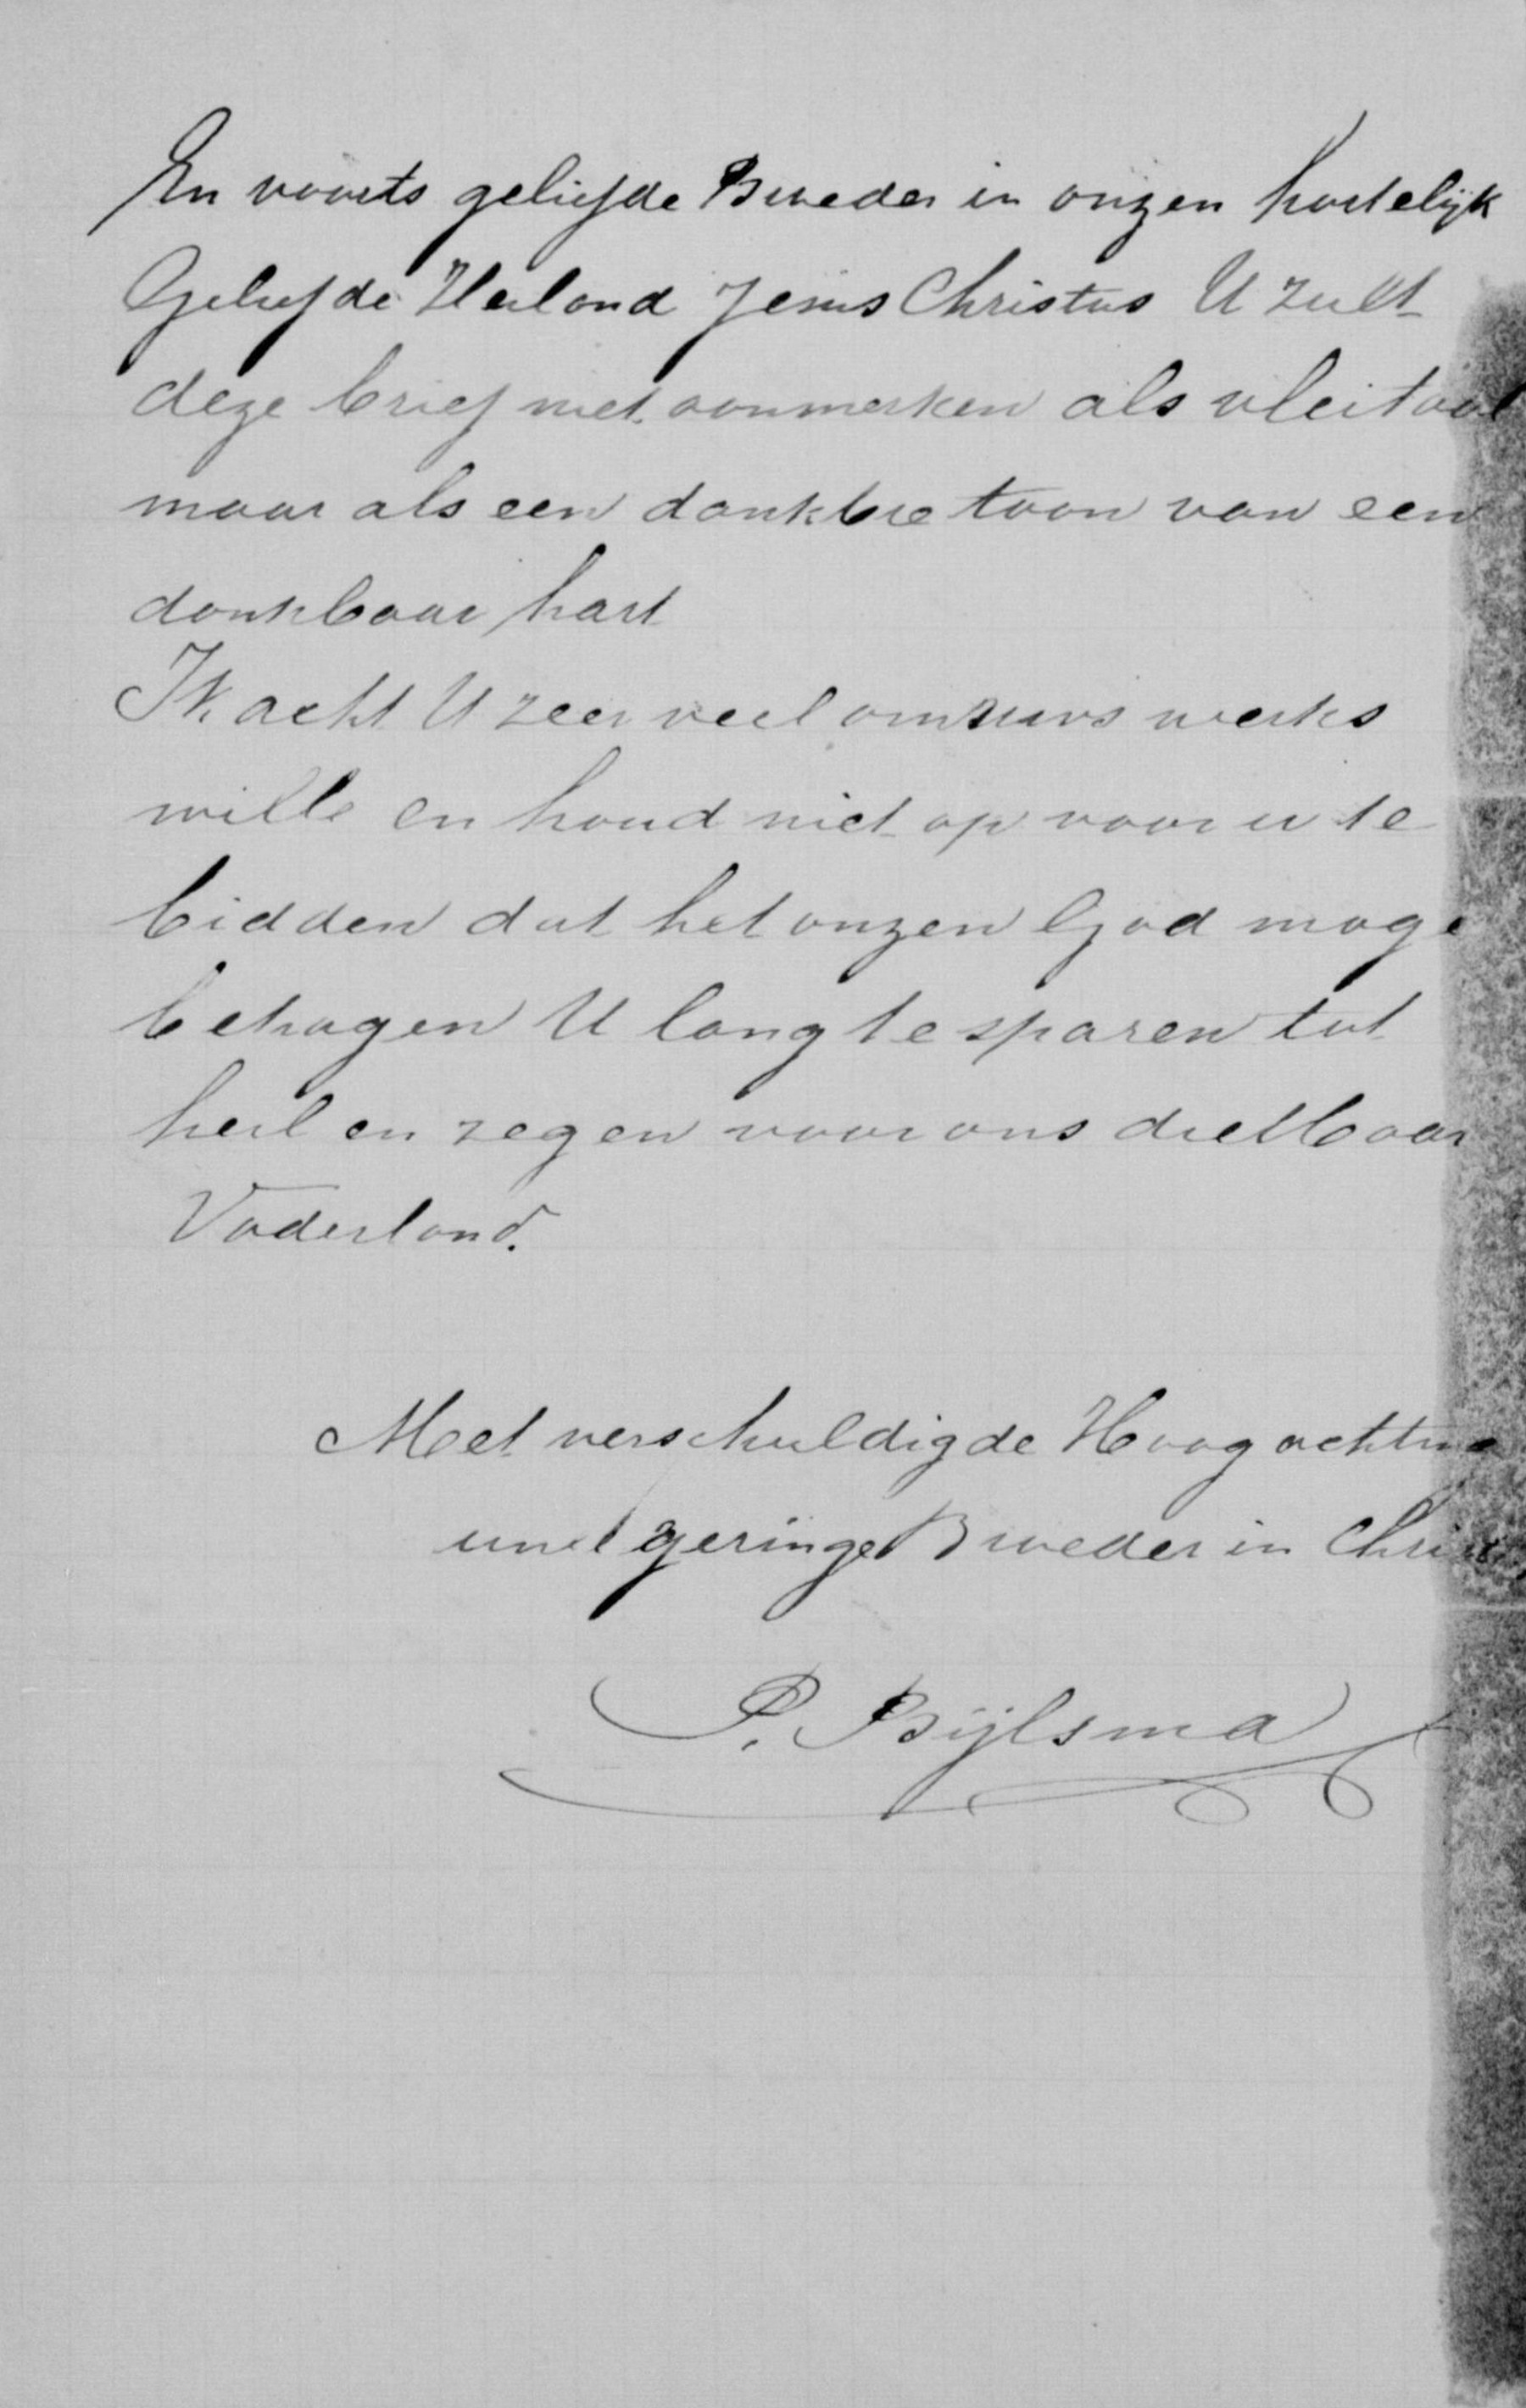 En voorts geliefde Broeder in onzen hartelijk
Geliefde Heiland Jesus Christus U zult
deze brief niet aanmerken als vleitaal
maar als een dankbre toon van een
dankbaar hart
Ik acht U zeer veel om uws werks
wille en houd niet op voor u te
bidden dat het onzen God moge
behagen U lang te sparen tot
heil en zegen voor ons dierbaar
Vaderland.
Met verschuldigde Hoogachting
geringe Broeder in
P. Bijlsma